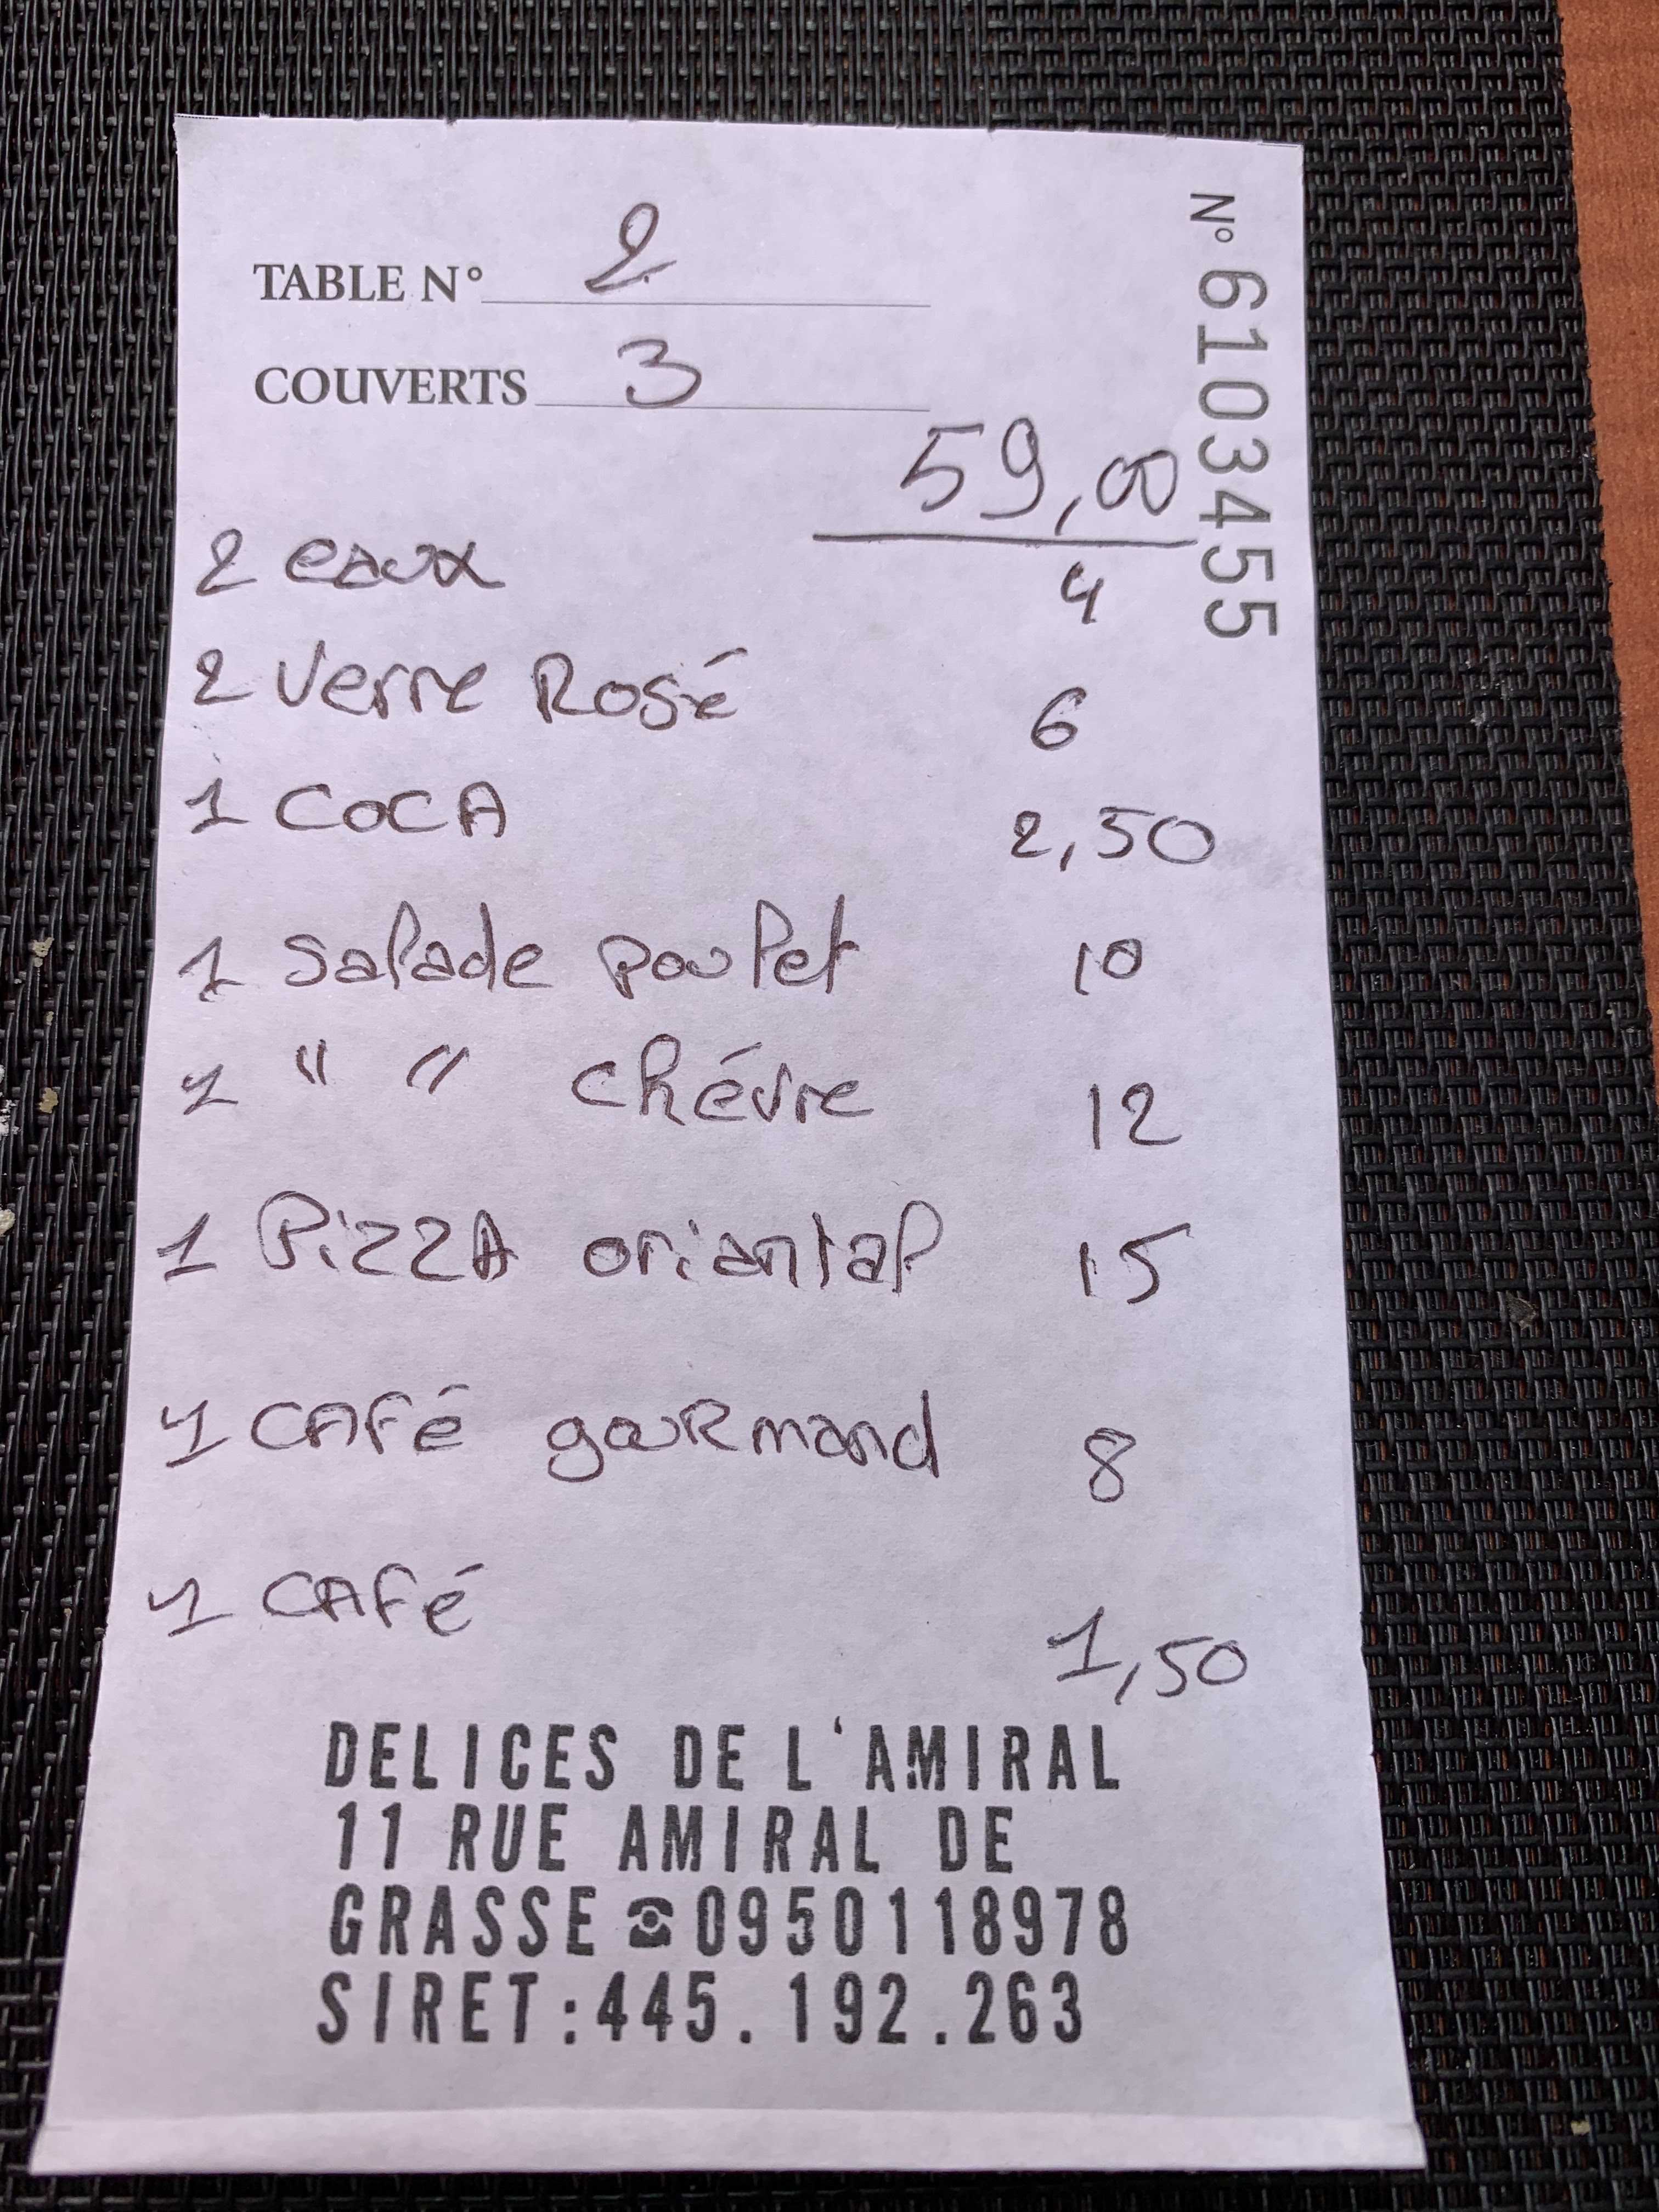 N° 6103455
TABLE N° 2
COUVERTS 3
59,00
2 eaux 4
2 verre Rosé 6
1 COCA 2,50
1 Salade poulet 10
1 " " chévre 12
1 PiZZA oriantal 15
1 CAFé gouRmand 8
1 CAFé 1,50
DELICES DE L'AMIRAL
11 RUE AMIRAL DE
GRASSE ☎0950118978
SIRET:445.192.263